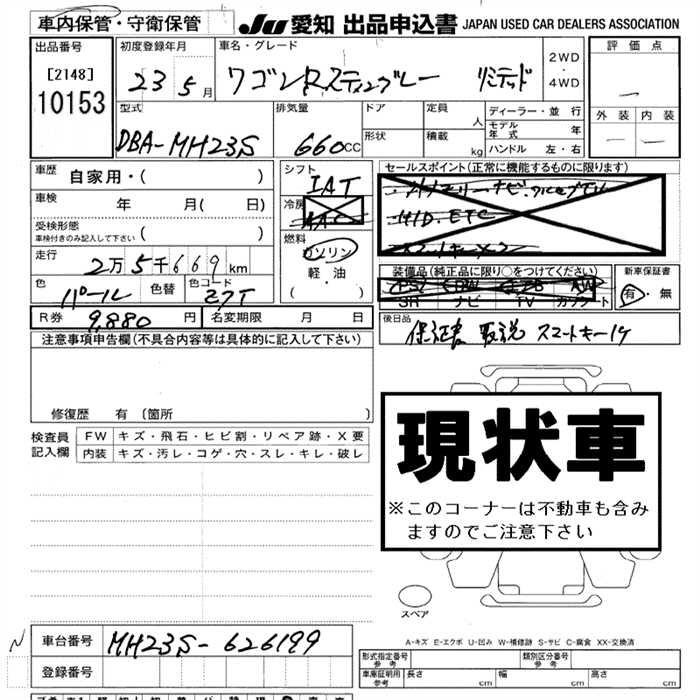 車内保管・守衛保管
JU 愛知 出品申込書 JAPAN USED CAR DEALERS ASSOCIATION
出品番号
[2148]
10153
初度登録年月
23 5月
車名・グレード
ワゴンRスティングレー リミテッド
2WD
・
4WD
評価点
—
外装 内装
— —
型式
DBA-MH23S
排気量
660CC
ドア
形状
定員 人
積載 kg
ディーラー・並行
モデル年式 年
ハンドル 左・右
車歴 自家用・( )
車検 年 月( 日)
受検形態
車検付きのみ記入して下さい ( )
走行
2万5千669km
色 パール 色替 色コード Z7T
シフト
IAT
冷房
AAC
燃料
ガソリン
軽・油
( )
セールスポイント(正常に機能するものに限ります)
HID. ETC
装備品(純正品に限り○をつけてください)
PS
SR ナビ TV カワシート
新車保証書
有・無
R券 9,880円 名変期限 月 日
後日品
保証書 取説 スマートキー1ケ
注意事項申告欄(不具合内容等は具体的に記入して下さい)
修復歴 有 〔箇所 〕
検査員記入欄
FW キズ・飛石・ヒビ割・リペア跡・X要
内装 キズ・汚レ・コゲ・穴・スレ・キレ・破レ
現状車
※このコーナーは不動車も含み
ますのでご注意下さい
スペア
A-キズ E-エクボ U-凹み W-補修跡 S-サビ C-腐食 XX-交換済
N 車台番号 MH23S-626199
登録番号
形式指定番号
参考
類別区分番号
参考
車庫証明用
参考
長さ cm 幅 cm 高さ cm